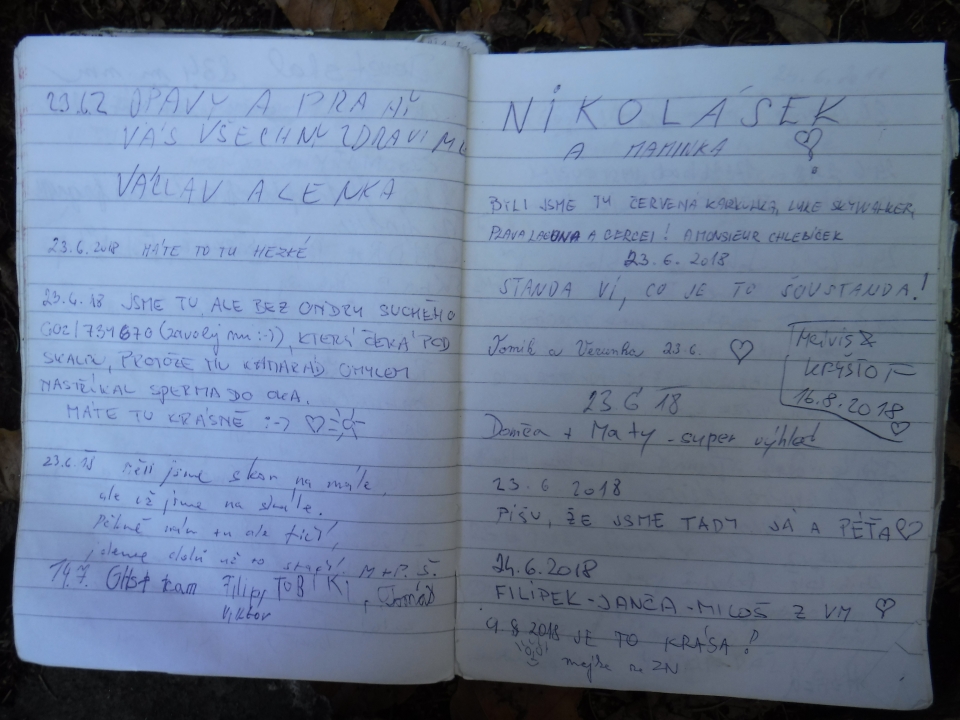 23.6. Z OPAVY A PRAHY
VÁS VŠECHNY ZDRAVÍME
VÁCLAV ALENKA
23.6.2018 MÁTE TO TU HEZKÉ
23.6.18 JSME TU, ALE BEZ ONDRY SUCHÉHO
602/734670 (zavolej mu :-)), KTERÝ ČEKÁ POD
SKALOU, PROTOŽE MU KAMARÁD OMYLEM
NASTŘÍKAL SPERMA DO OKA.
MÁTE TU KRÁSNĚ :-)
23.6.18 Měli jsme skon na mále,
ale už jsme na skále.
Pěkně nám tu ale fičí,
jdeme dolů už to stačí! M+P. Š.
14.7. Filip, TOBIKI, Tomáš
Viktor
NIKOLÁSEK
A MAMINKA
BYLI JSME TU ČERVENÁ KARKULKA, LUKE SKYWALKER,
PLAVÁ LAGUNA A CERCEI! A MONSIEUR CHLEBÍČEK
23.6.2018
STANDA VÍ, CO JE TO ŠOUSTANDA!
Tomík a Verunka 23.6.
KRYŠTOF
16.8.2018
23 6 18
Domča + Maty - super výhled
23.6 2018
PÍŠU, ŽE JSME TADY JÁ A PÉŤA
24.6.2018
FILÍPEK-JANČA-MILOŠ Z VM
9.8 2018 JE TO KRÁSA!
ZN